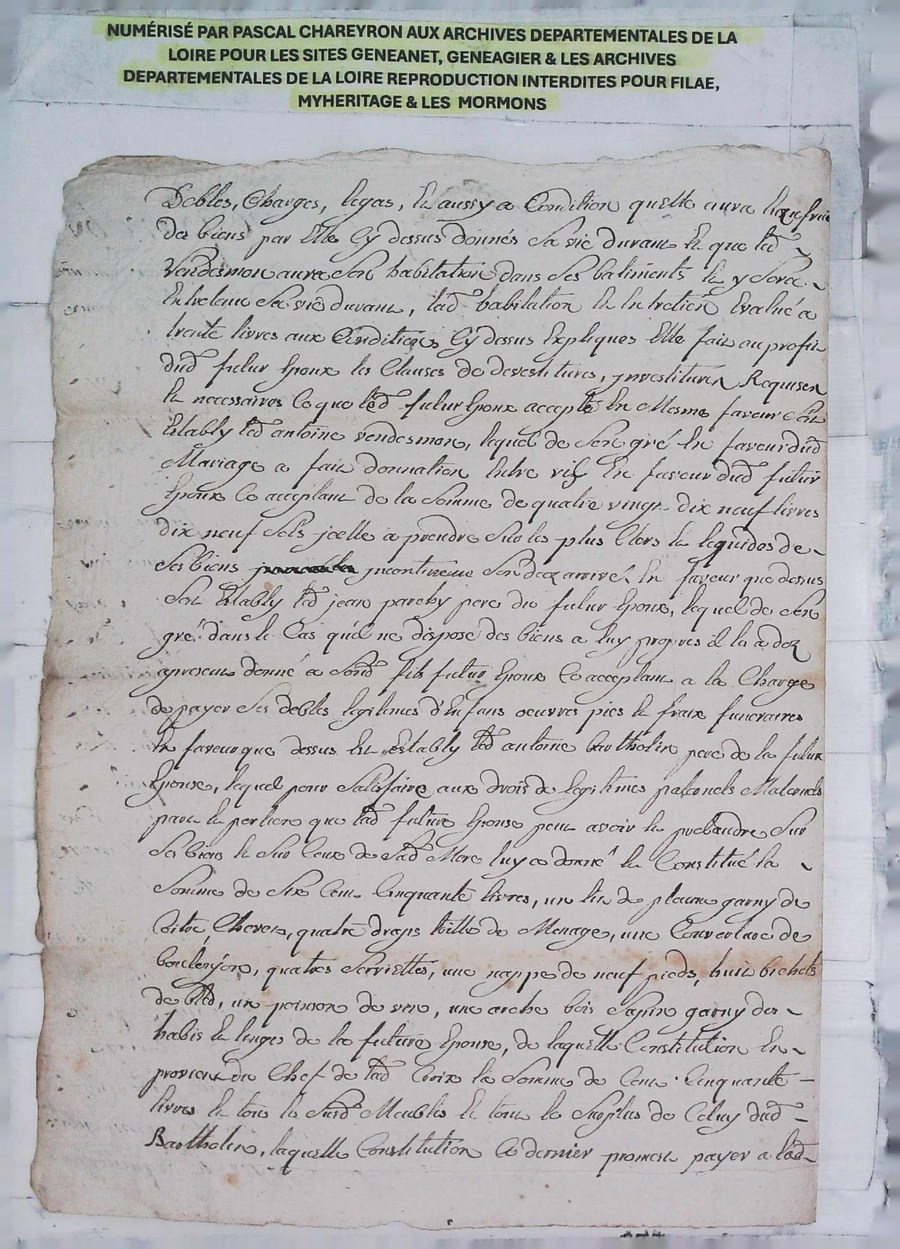 NUMÉRISÉ PAR PASCAL CHAREYRON AUX ARCHIVES DEPARTEMENTALES DE LA
LOIRE POUR LES SITES GENEANET, GENEAGIER & LES ARCHIVES
DEPARTEMENTALES DE LA LOIRE REPRODUCTION INTERDITES POUR FILAE,
MYHERITAGE & LES MORMONS
Debtes, Charges, legas, et aussy a Condition quelle aura lusufruit
des biens par Elle Cy dessus donnés Sa vie durant et que lad
Vendesmon aura Son habitation dans Ses batiments et y Sera
Entretenu Sa vie durant, lad habitation et Entretien Evalué a
trente livres aux Conditions Cy dessus Expliques Elle fait au profit
dud futur Epoux les Clauses de devestitures, jnvestitures Requises
et necessaires Ce que led futur Epoux accepte En Mesme faveur Est
Etably led antoine vendesmon, lequel de Son gré En faveur dud
Mariage a fait donnation Entre vifs En faveur dud futur
Epoux Ce acceptant de la Somme de quatre vingt dix neuf livres
dix neuf Sols jcelle a prendre Sur les plus Clers et liquides de
Ses biens jncontinent Son dexces arrivé En faveur que dessus
Est Etably led jean parchy pere du futur Epoux, lequel de Son
gré dans le Cas qu'il ne dispose des biens a luy propres il la a dez
apresent donné a Sond fils futur Epoux Ce acceptant a la Charge
de payer Ses debtes legitimes d'Enfans oeuvres pies et fraix funeraires
En faveur que dessus Est Estably led antoine bartholin pere de la future
Epouse, lequel pour Satisfaire aux droits de legitimes paternels Maternels
part et portion que lad future Epouse peut avoir et pretandre Sur
Ses biens et Sur Ceux de Sad Mere luy a donné et Constitué la
Somme de Six Cent Cinquante livres, un lit de plume garny de
Chevet, quatre draps toille de Menage, une Couverture de
quatres Serviettes, une nappe de neuf pieds, huit bichets
de bled, un de vin, une arche bois Sapin garny des
habis et linges de la future Epouse, de laquelle Constitution En
provient du Chef de lad la Somme de Cent Cinquante
livres et tous le Surd Meubles et tout le Surplus de Celuy dud
Bartholin, laquelle Constitution Ce dernier promest payer a lad